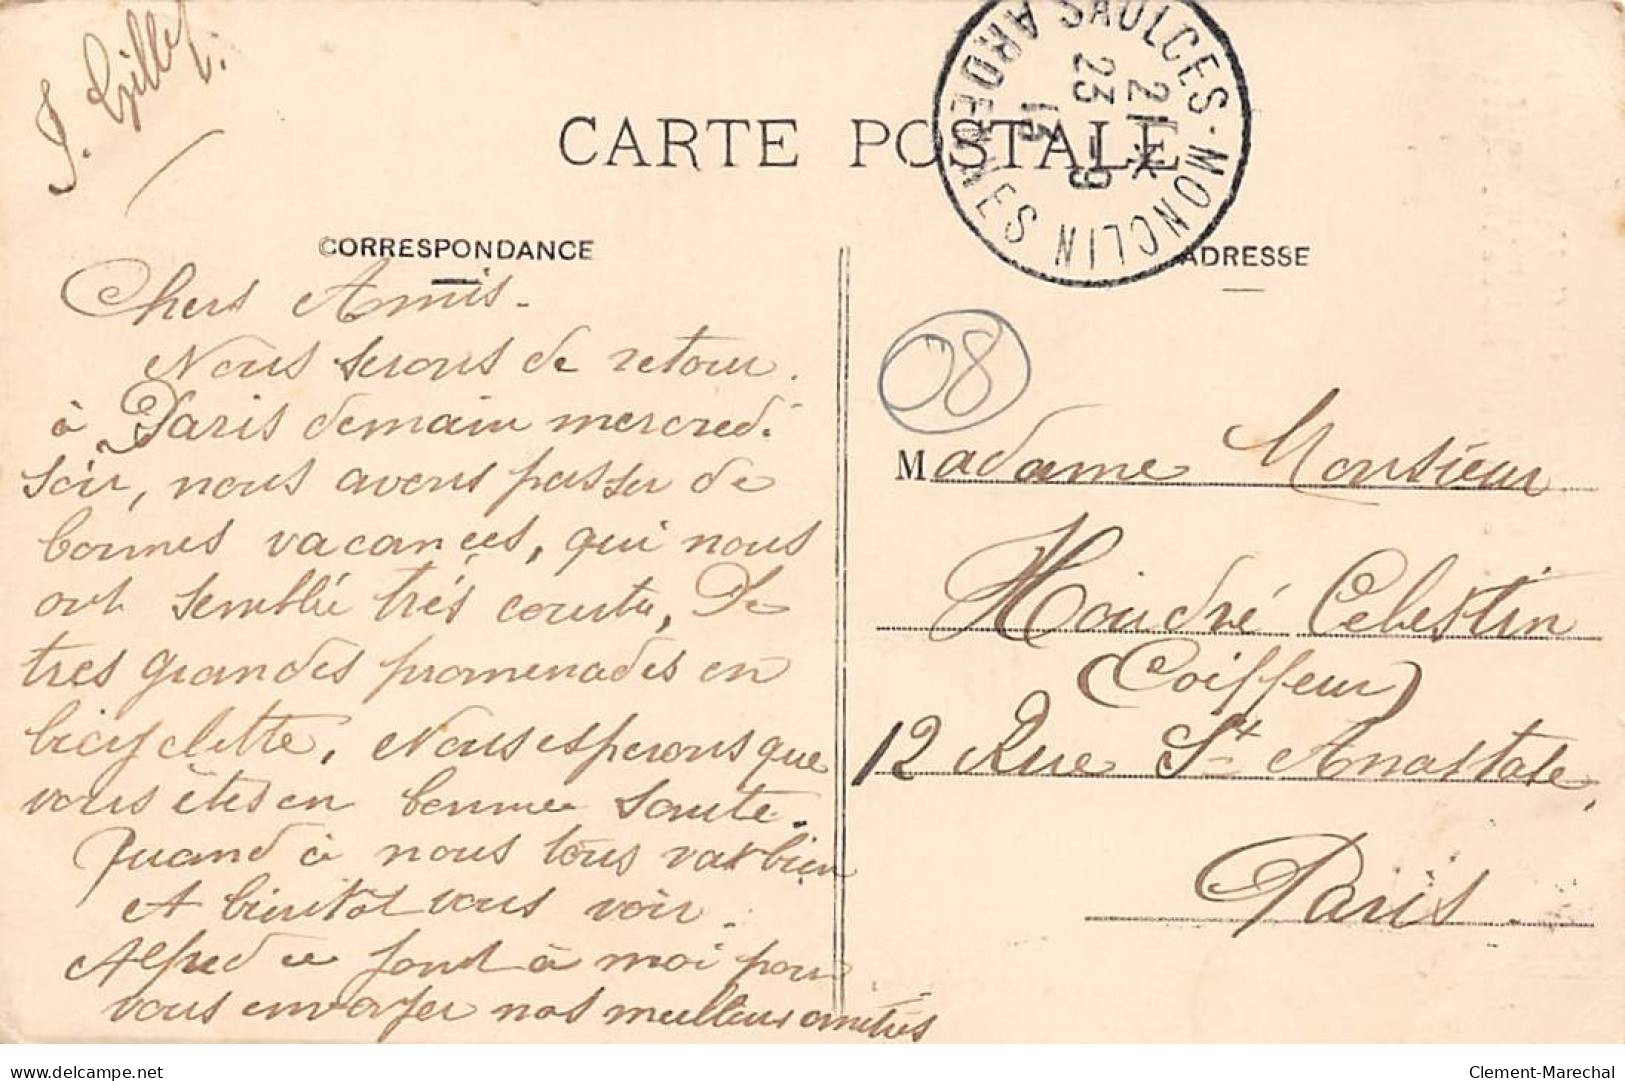 J. Gillet.
CARTE POSTALE
SAULCES-MONCLIN
ARDENNES
21 *
23 - 9
13
CORRESPONDANCE
ADRESSE
08
Chers Amis.
Nous serons de retour
à Paris demain mercredi
soir, nous avons passer de
bonnes vacances, qui nous
ont semblé très courte, De
tres grandes promenades en
bicyclette. Nous esperons que
vous êtes en bonne sante.
Quand à nous tous va bien
A bientot vous voir.
Alfred ce joint à moi pour
vous envoyer nos meilleurs amitiés
Madame Monsieur
Houdré Celestin
(Coiffeur)
12 Rue St Anastase,
Paris.
Clement-Marechal